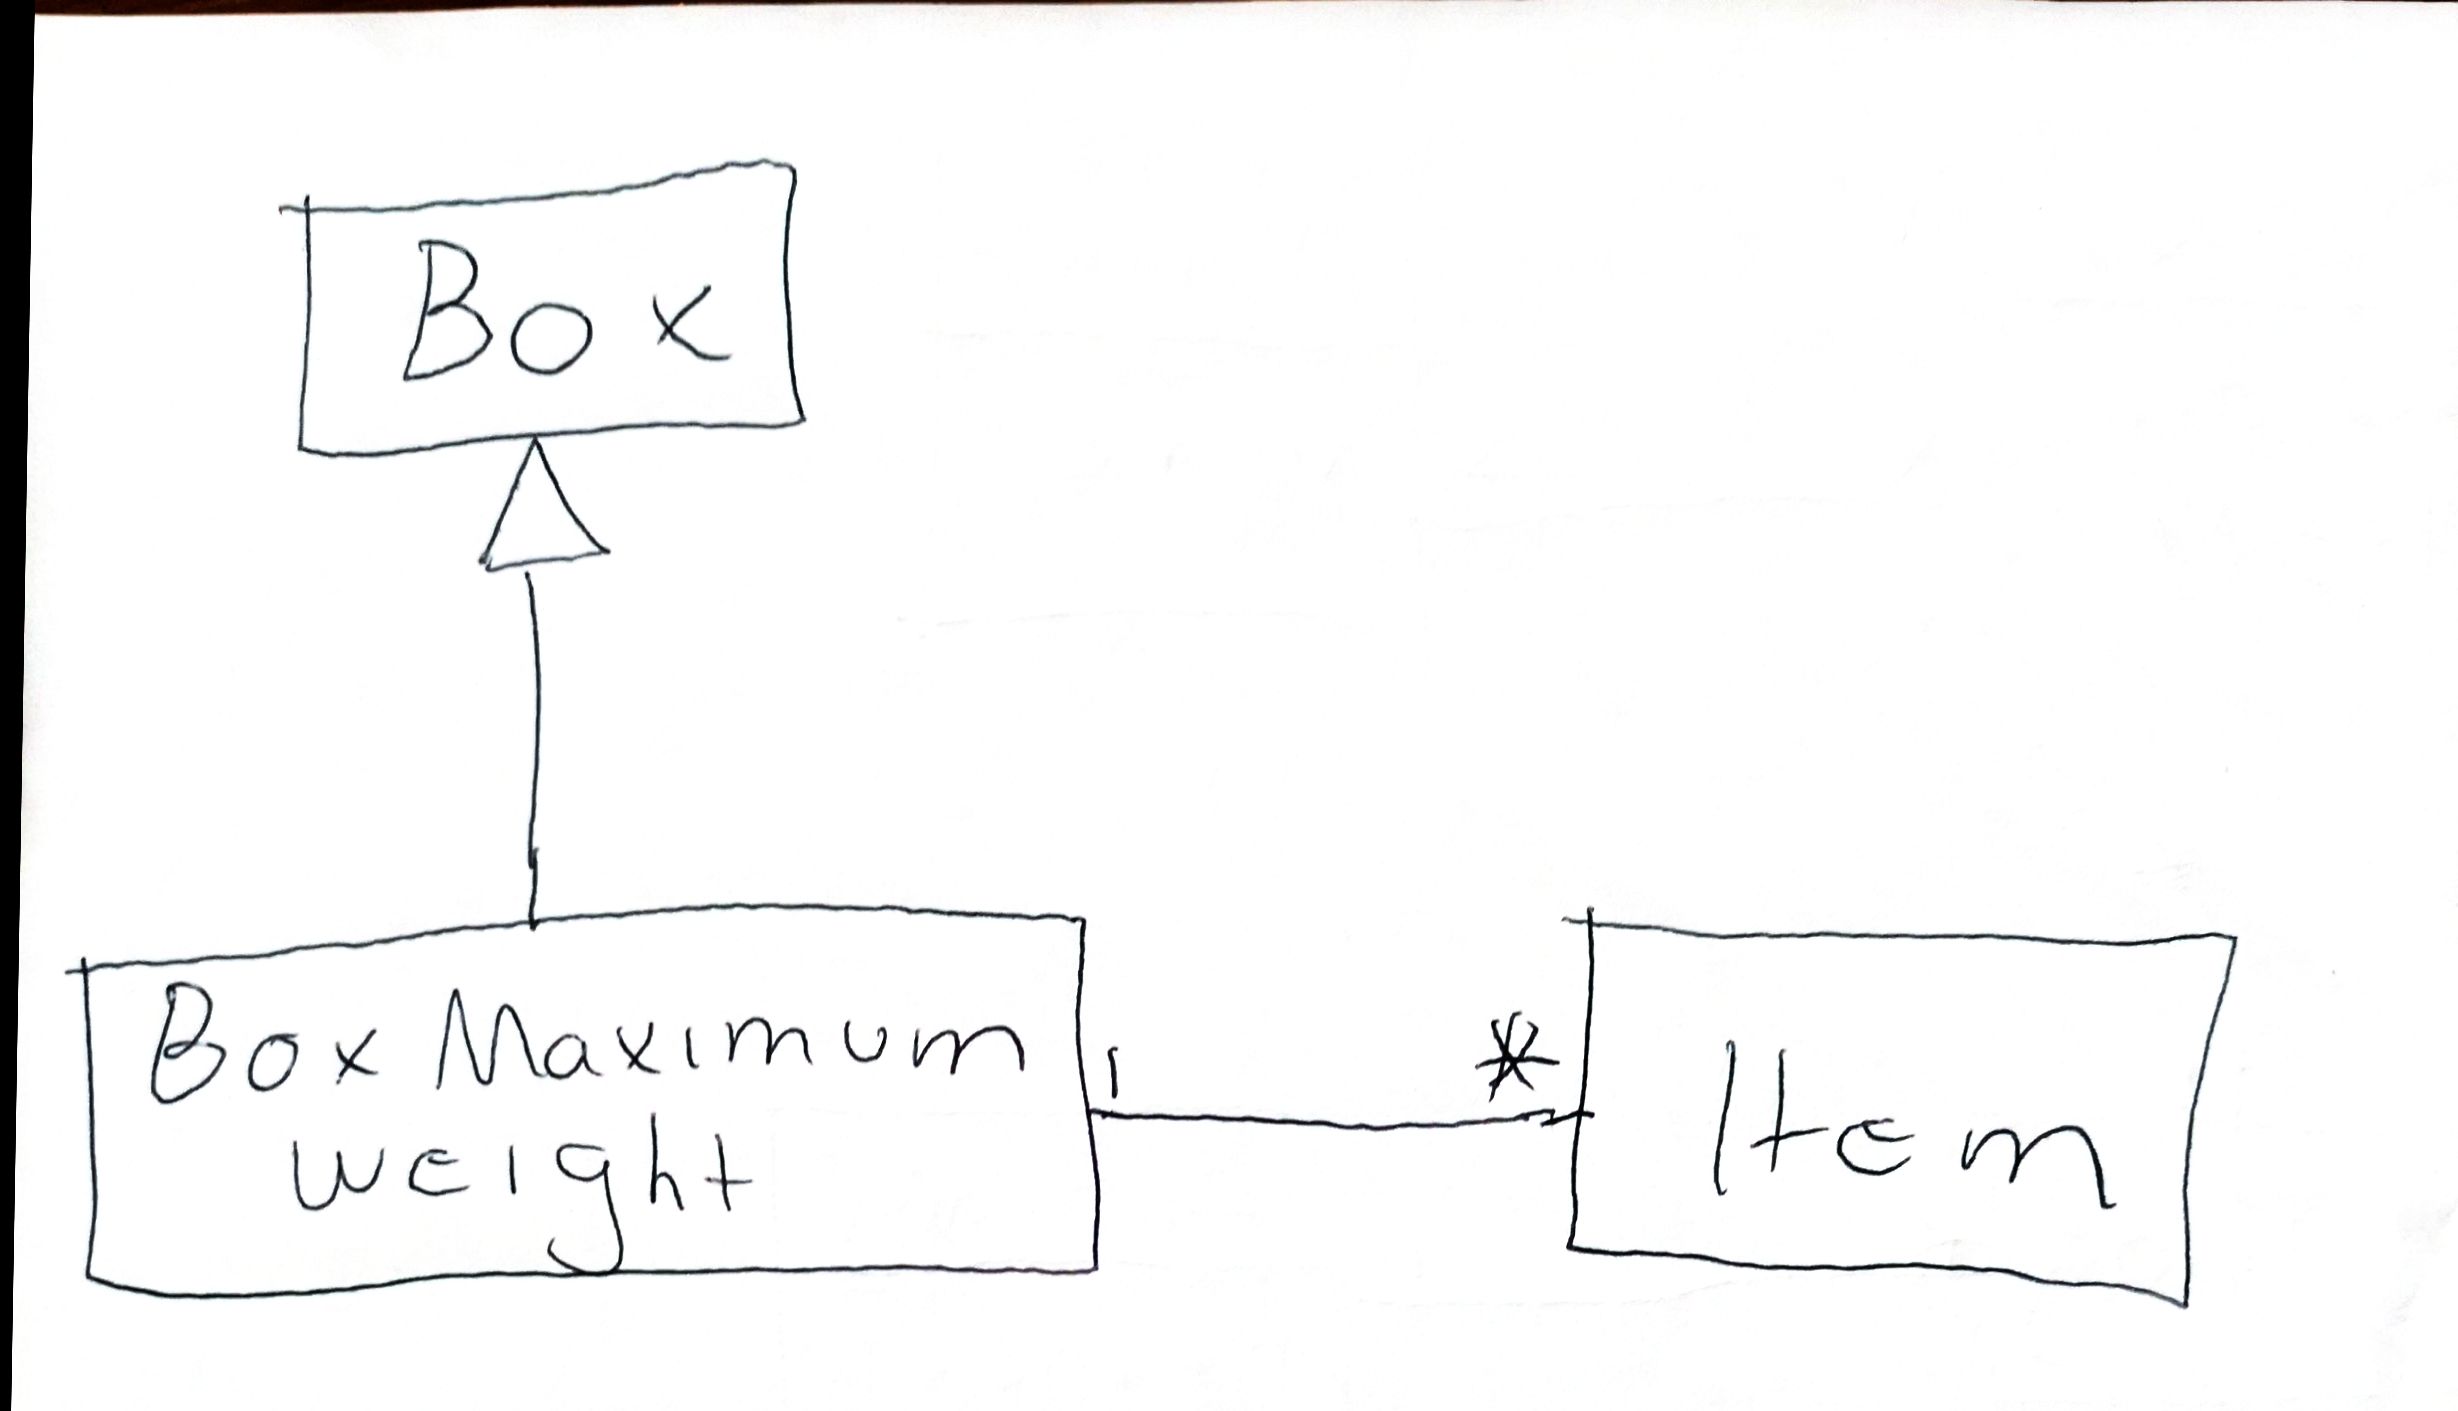 Box
Box Maximum
weight
1 *
Item